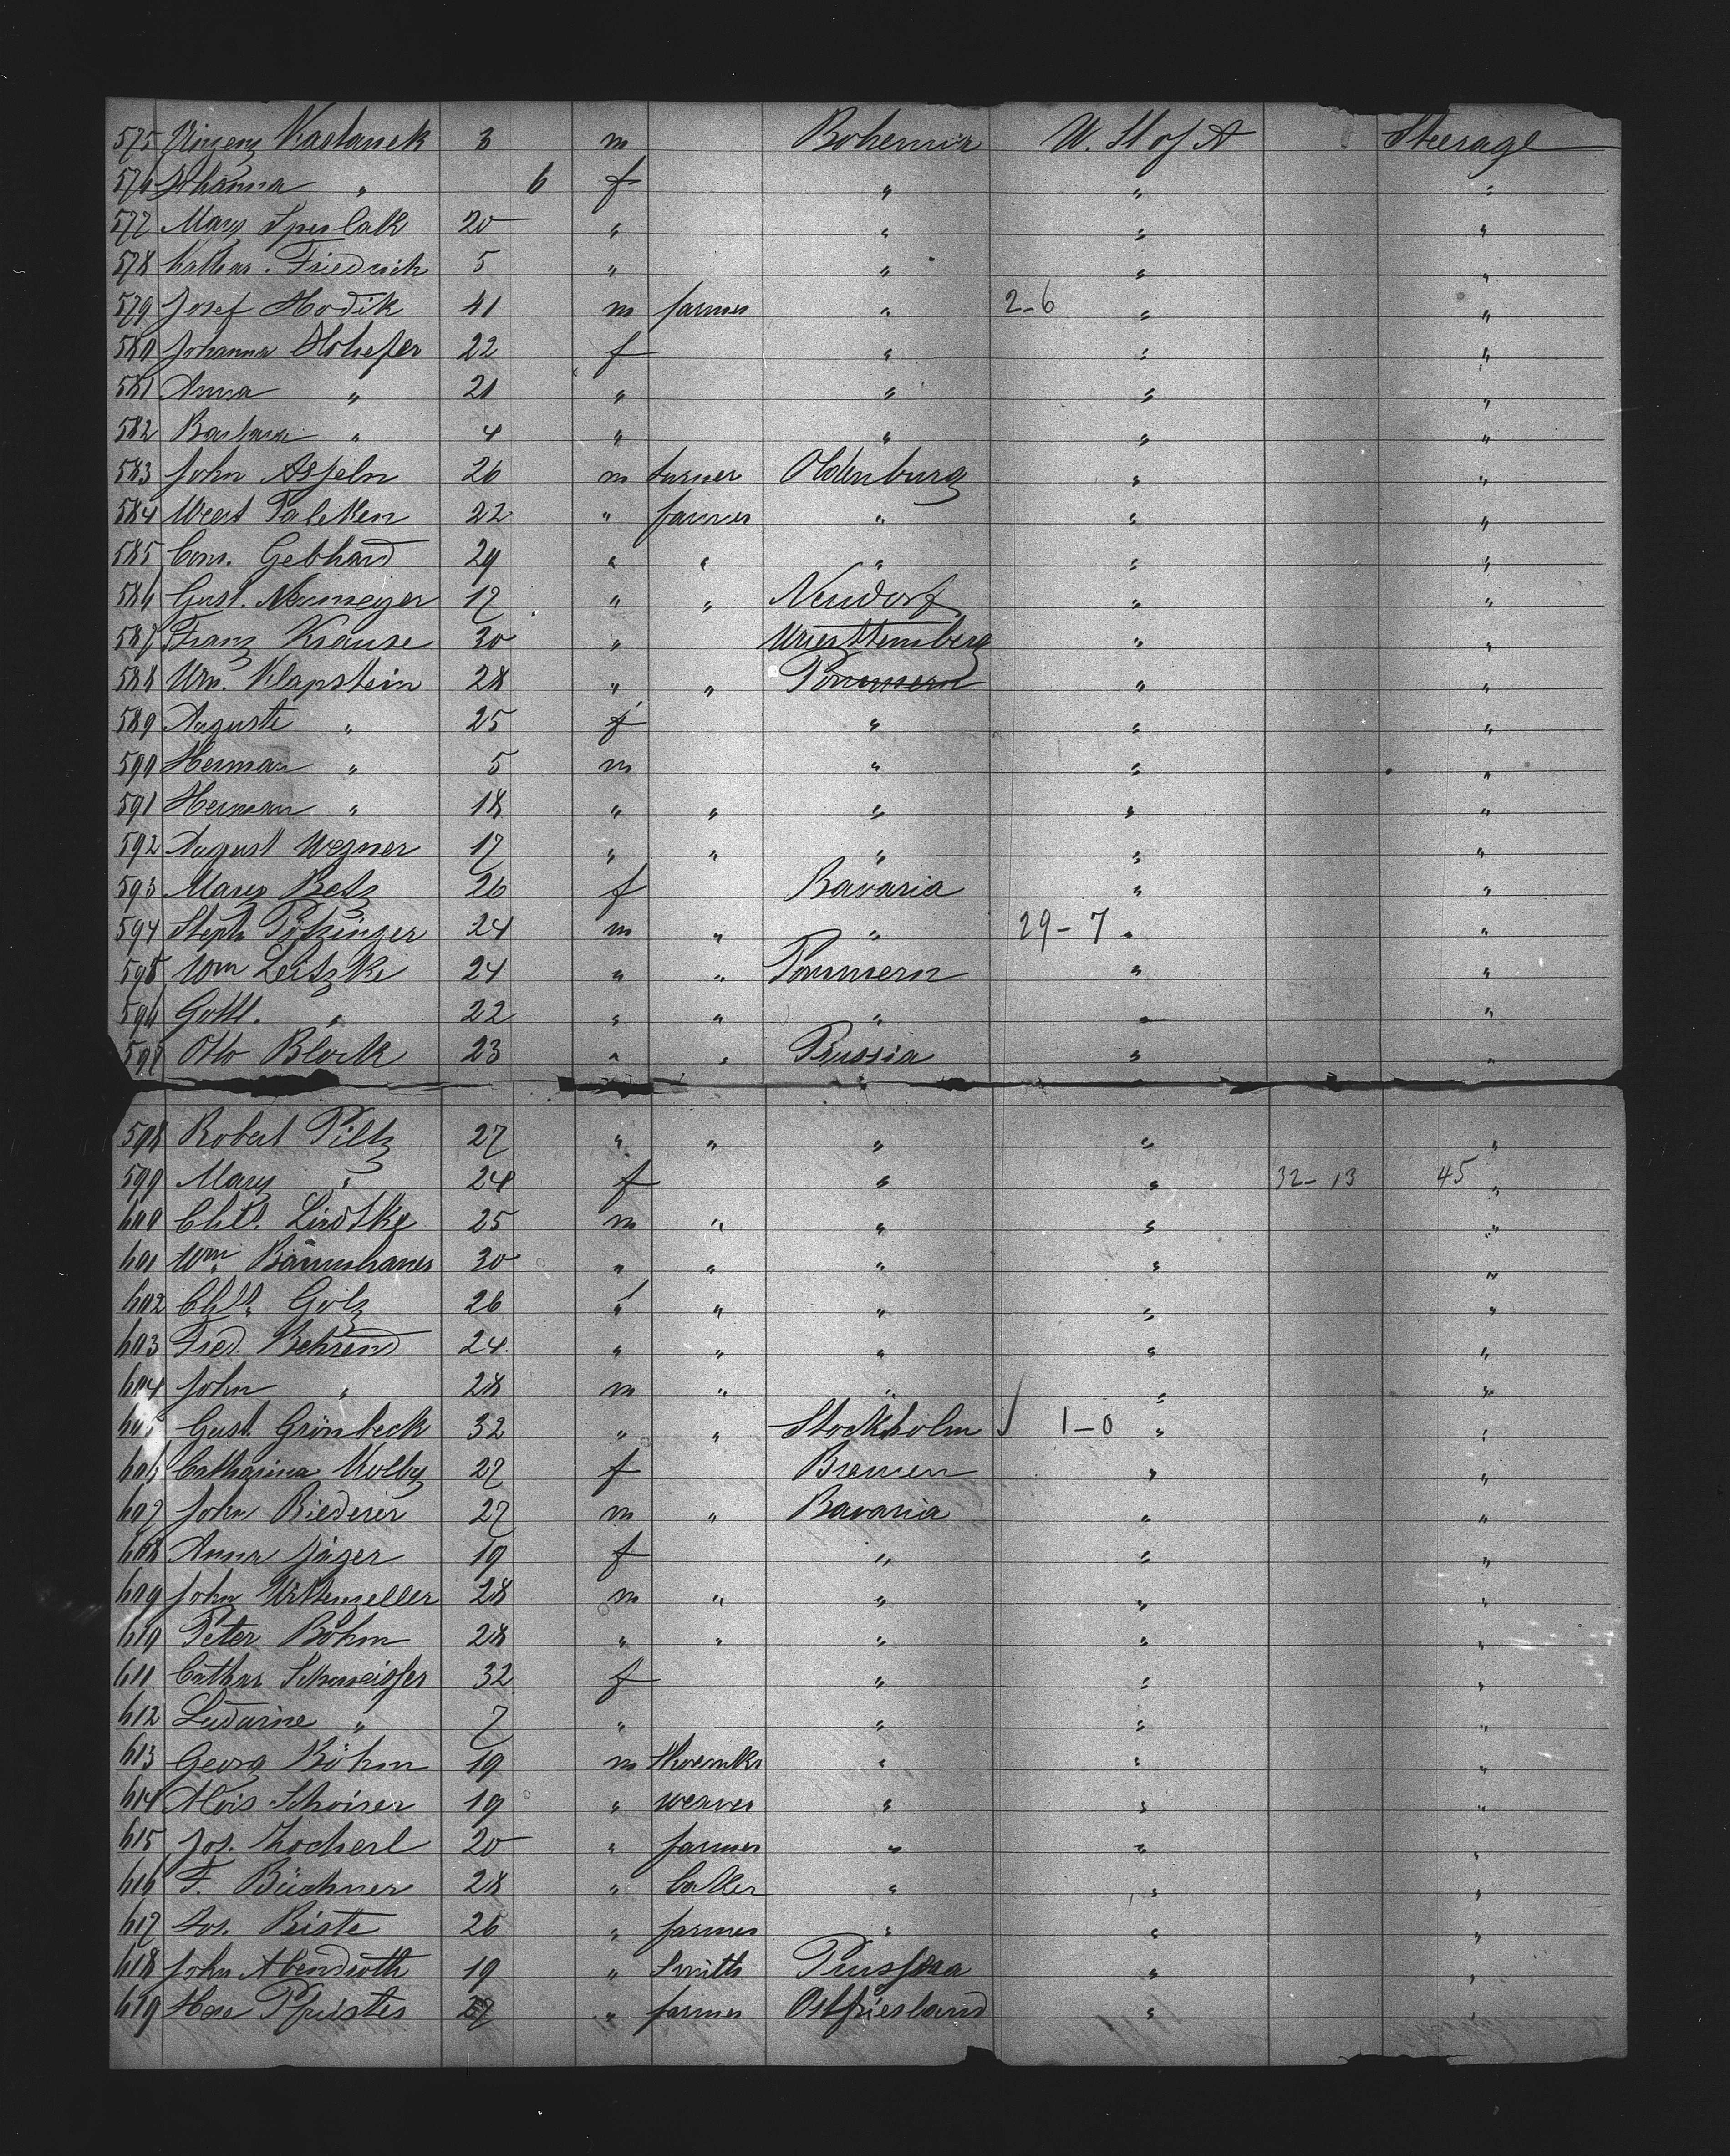 575 Vinzenz Kastanek 3 m Bohemia U. St of A Steerage
576 Johanna " 6 f " " "
577 Mary 20 " " " "
578 Kathar. Friedrich 5 " " " "
579 Josef Hodik 41 m farmer " 2-6 " "
580 Johanna 22 f " " "
581 Anna " 21 " " " "
582 Barbara " 4 " " " "
583 John Asseln 26 m turner Oldenburg " "
584 Wert Talcken 22 " farmer " " "
585 Conr. Gebhard 29 " " " " "
586 Gust. Neumeyer 17 " " Neudorf " "
587 Franz Krause 30 " Wuerttemberg " "
588 Wm. Klapstein 28 " " Pommern " "
589 Auguste " 25 f " " "
590 Herman " 5 m " " "
591 Herman " 18 " " " " "
592 August Wegner 17 " " " " "
593 Mary Betz 26 f Bavaria " "
594 Steph. Pitzinger 24 m " " 29-7 " "
595 Wm Leitzke 24 " " Pommern " "
596 Gottl. " 22 " " " " "
597 Otto Block 23 " " Prussia " "
598 Robert Piltz 27 " " " " "
599 Mary " 24 f " " 32-13 45 "
600 Lindtke 25 m " " " "
601 Wm. Baumhauer 30 " " " " "
602 Golz 26 " " " " "
603 Fred. Behrend 24 " " " " "
604 John " 28 m " " " "
605 Gust. Grönbeck 32 " " Stockholm 1-0 " "
606 Catharina Kolby 27 f Bremen " "
607 John Riederer 27 m " Bavaria " "
608 Anna Jäger 19 f " " "
609 John 28 m " " " "
610 Peter Böhm 28 " " " " "
611 Cathar Schweisser 32 f " " "
612 " 7 " " " "
613 Georg Böhm 19 m shoemkr " " "
614 Alois Schoirer 19 " weaver " " "
615 Jos. Zocherl 20 " farmer " " "
616 F. Büchner 28 " baker " " "
617 Jos. Riste 26 " farmer " " "
618 John Abendroth 19 " Smith Prussia " "
619 27 " farmer Ostfriesland " "